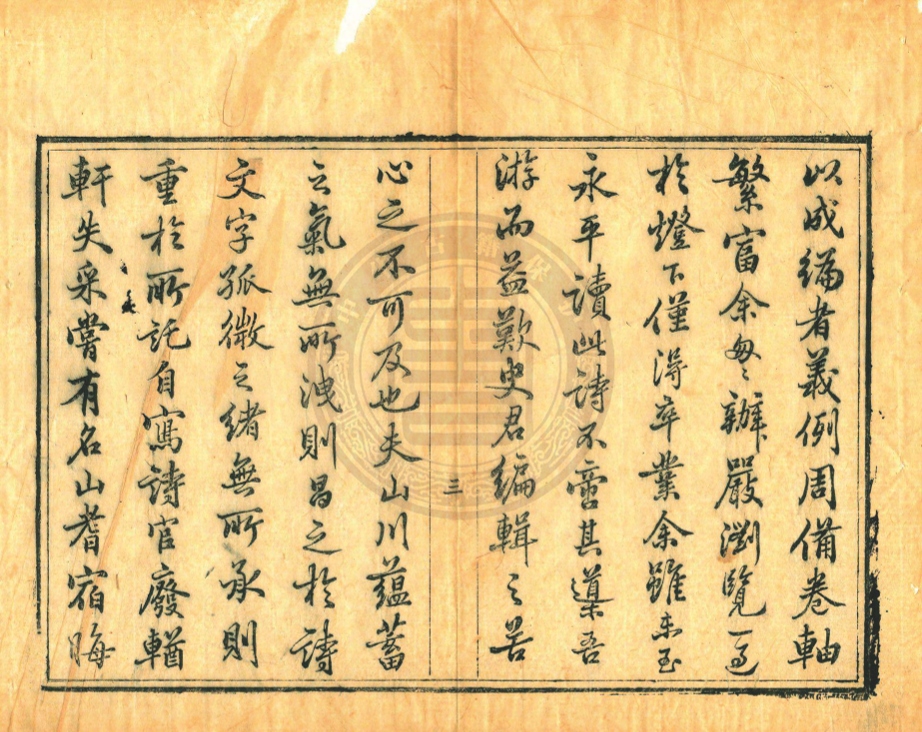 以成編者義例周備卷軸
繁富余匆〻辦嚴瀏覽一過
於燈下僅得卒業余雖未至
永平讀此詩不啻其導吾
游而益歎史君編輯之苦
三
心之不可及也夫山川蘊蓄
之氣無所洩則昌之於詩
文字孤微之緒無所承則
重於所託自寫詩官廢輶
軒失采嘗有名山耆宿晦